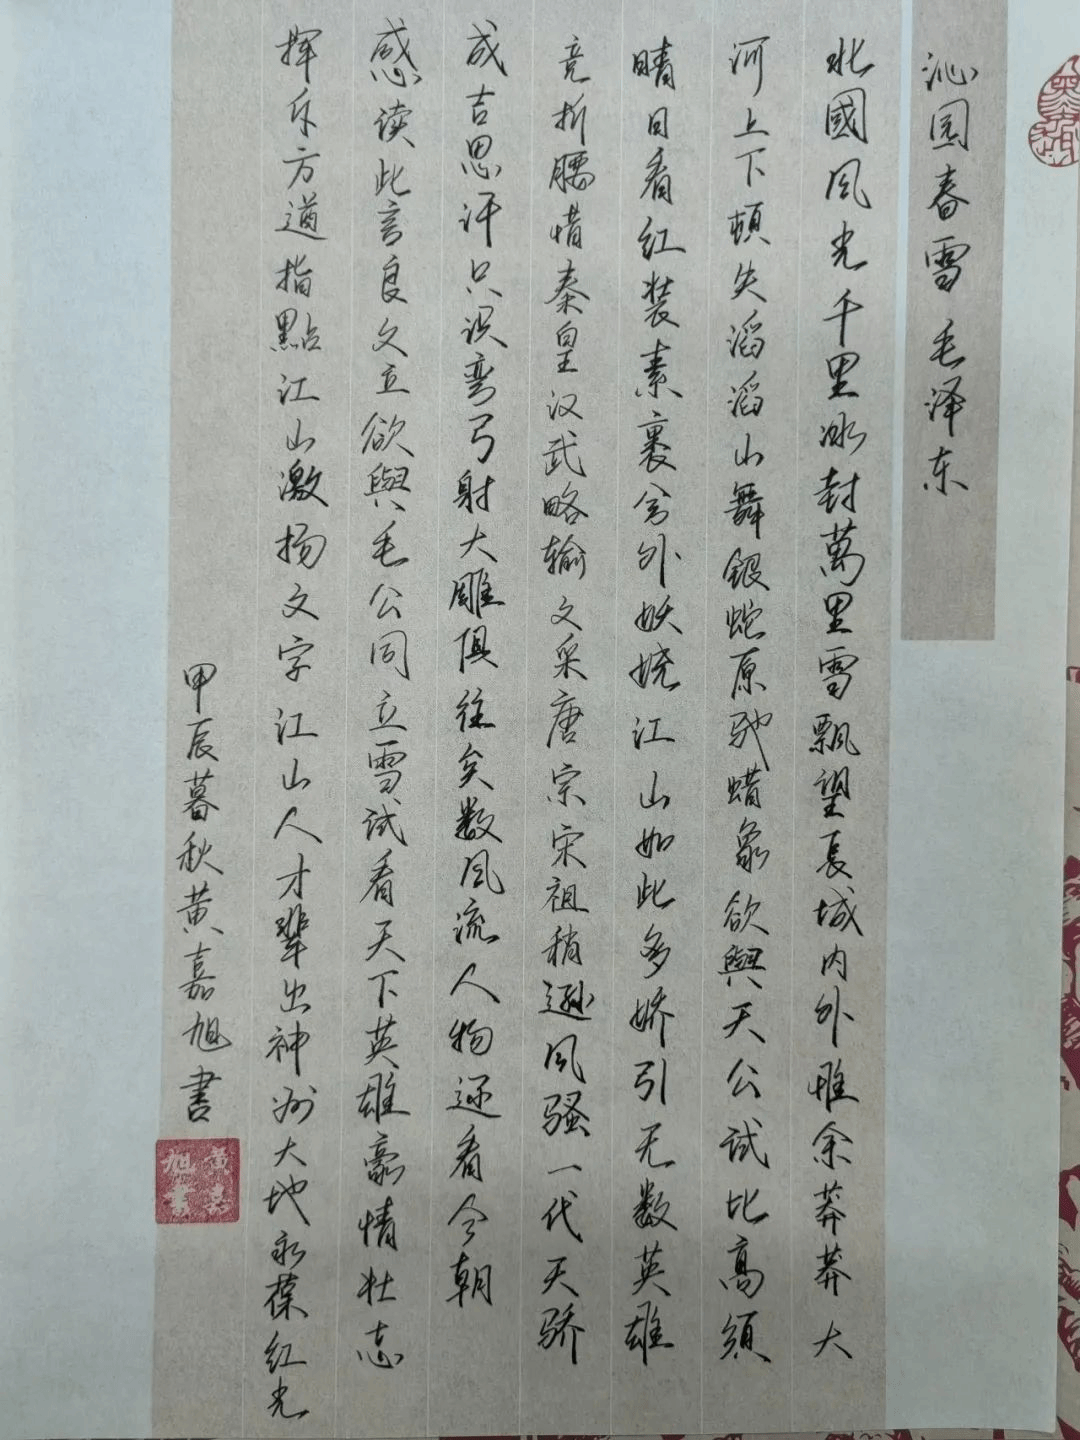 沁园春雪 毛泽东
北國风光千里冰封萬里雪飘望长城内外惟余莽莽大
河上下顿失滔滔山舞银蛇原驰蜡象欲與天公试比高须
晴日看红装素裹分外妖娆江山如此多娇引无数英雄
竞折腰惜秦皇汉武略输文采唐宗宋祖稍逊风骚一代天骄
成吉思汗只识弯弓射大雕俱往矣数风流人物还看今朝
感读此言良久立欲與毛公同立雪试看天下英雄豪情壮志
挥斥方遒指點江山激扬文字江山人才辈出神州大地永葆红光
甲辰暮秋黄嘉旭書
黄嘉旭書